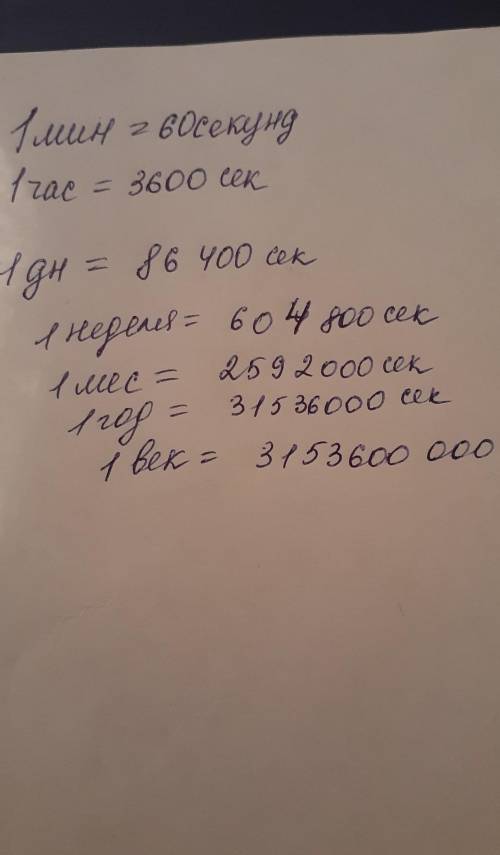 1 мин = 60 секунд
1 час = 3600 сек
1 дн = 86 400 сек
1 неделя = 604 800 сек
1 мес = 2592000 сек
1 год = 31536000 сек
1 век = 3153600 000